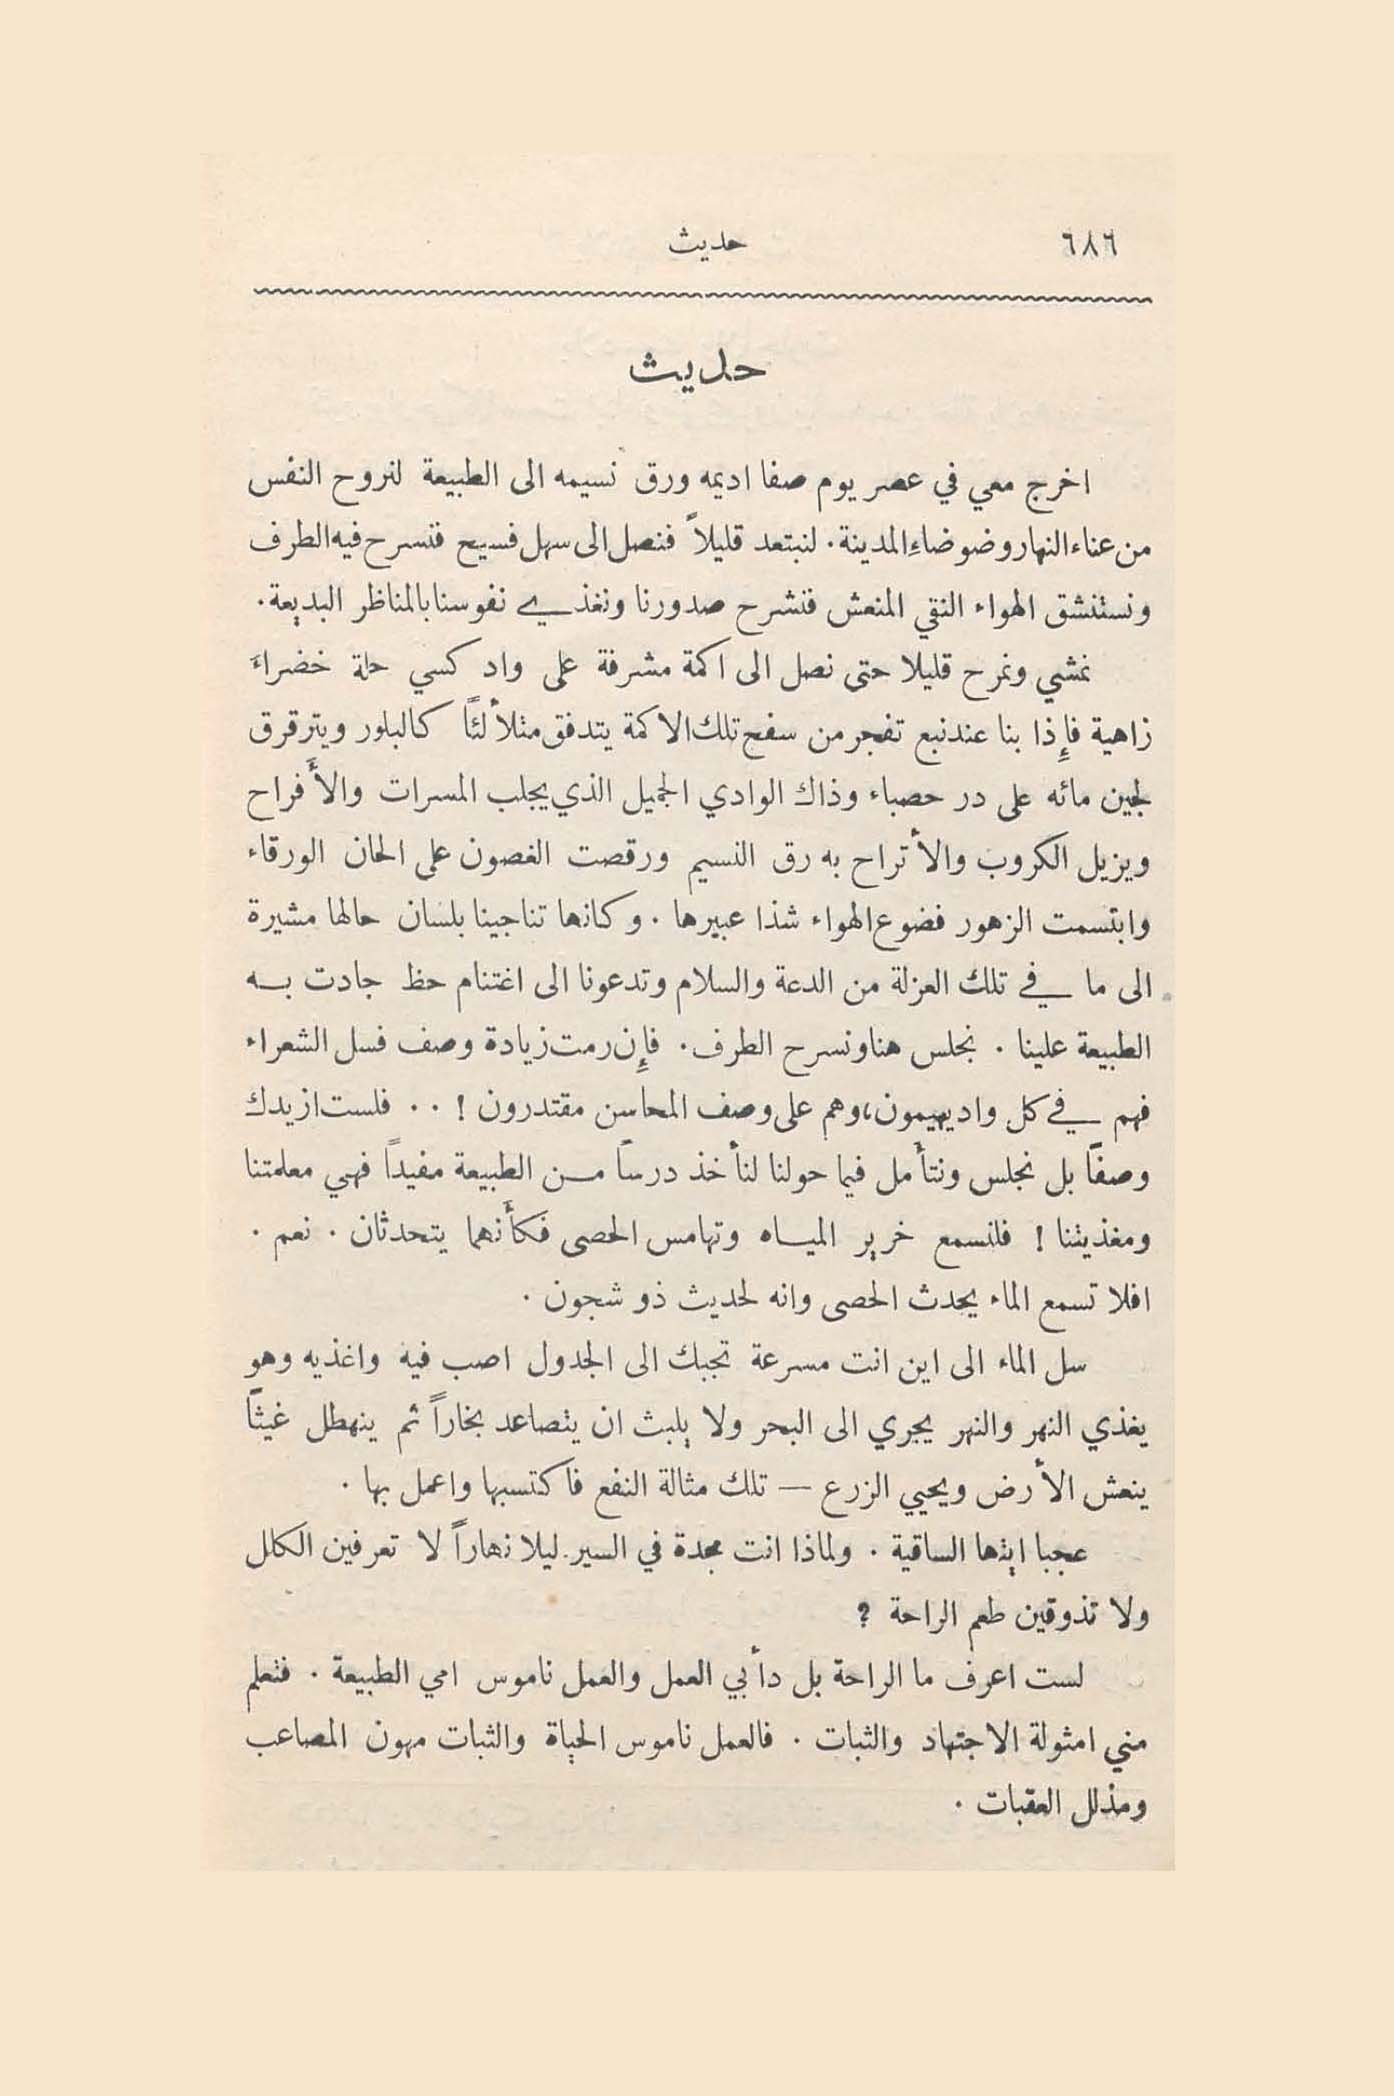 ٦٨٦
حديث
حديث
اخرج معي في عصر يوم صفا اديمه ورق نسيمه الى الطبيعة لنروح النفس
من عناء النهار وضوضاءِ المدينة. لنبتعد قليلاً فنصل الى سهل فسيح فنسرح فيه الطرف
ونستنشق الهواء النقي المنعش فنشرح صدورنا ونغذي نفوسنا بالمناظر البديعة.
نمشي ونمرح قليلا حتى نصل الى اكمة مشرفة على واد كسي حلة خضراءَ
زاهية فإِذا بنا عند نبع تفجر من سفح تلك الاكمة يتدفق متلألئاً كالبلور ويترقرق
لجين مائه على در حصباء وذاك الوادي الجميل الذي يجلب المسرات والأَفراح
ويزيل الكروب والأتراح به رق النسيم ورقصت الغصون على الحان الورقاء
وابتسمت الزهور فضوع الهواء شذا عبيرها. وكانها تناجينا بلسان حالها مشيرة
الى ما في تلك العزلة من الدعة والسلام وتدعونا الى اغتنام حظ جادت به
الطبيعة علينا. نجلس هنا ونسرح الطرف. فإِن رمت زيادة وصف فسل الشعراء
فهم في كل واد يهيمون، وهم على وصف المحاسن مقتدرون! .. فلست ازيدك
وصفاً بل نجلس ونتأمل فيما حولنا لنأخذ درساً من الطبيعة مفيداً فهي معلمتنا
ومغذيتنا! فلنسمع خرير المياه وتهامس الحصى فكأَنهما يتحدثان. نعم.
افلا تسمع الماء يحدث الحصى وانه لحديث ذو شجون.
سل الماء الى اين انت مسرعة تجبك الى الجدول اصب فيه واغذيه وهو
يغذي النهر والنهر يجري الى البحر ولا يلبث ان يتصاعد بخاراً ثم ينهطل غيثاً
ينعش الأرض ويحيي الزرع — تلك مثالة النفع فاكتسبها واعمل بها.
عجبا ايتها الساقية. ولماذا انت مجدة في السير ليلا نهاراً لا تعرفين الكلل
ولا تذوقين طعم الراحة ؟
لست اعرف ما الراحة بل دأبي العمل والعمل ناموس امي الطبيعة. فتعلم
مني امثولة الاجتهاد والثبات. فالعمل ناموس الحياة والثبات مهون المصاعب
ومذلل العقبات.